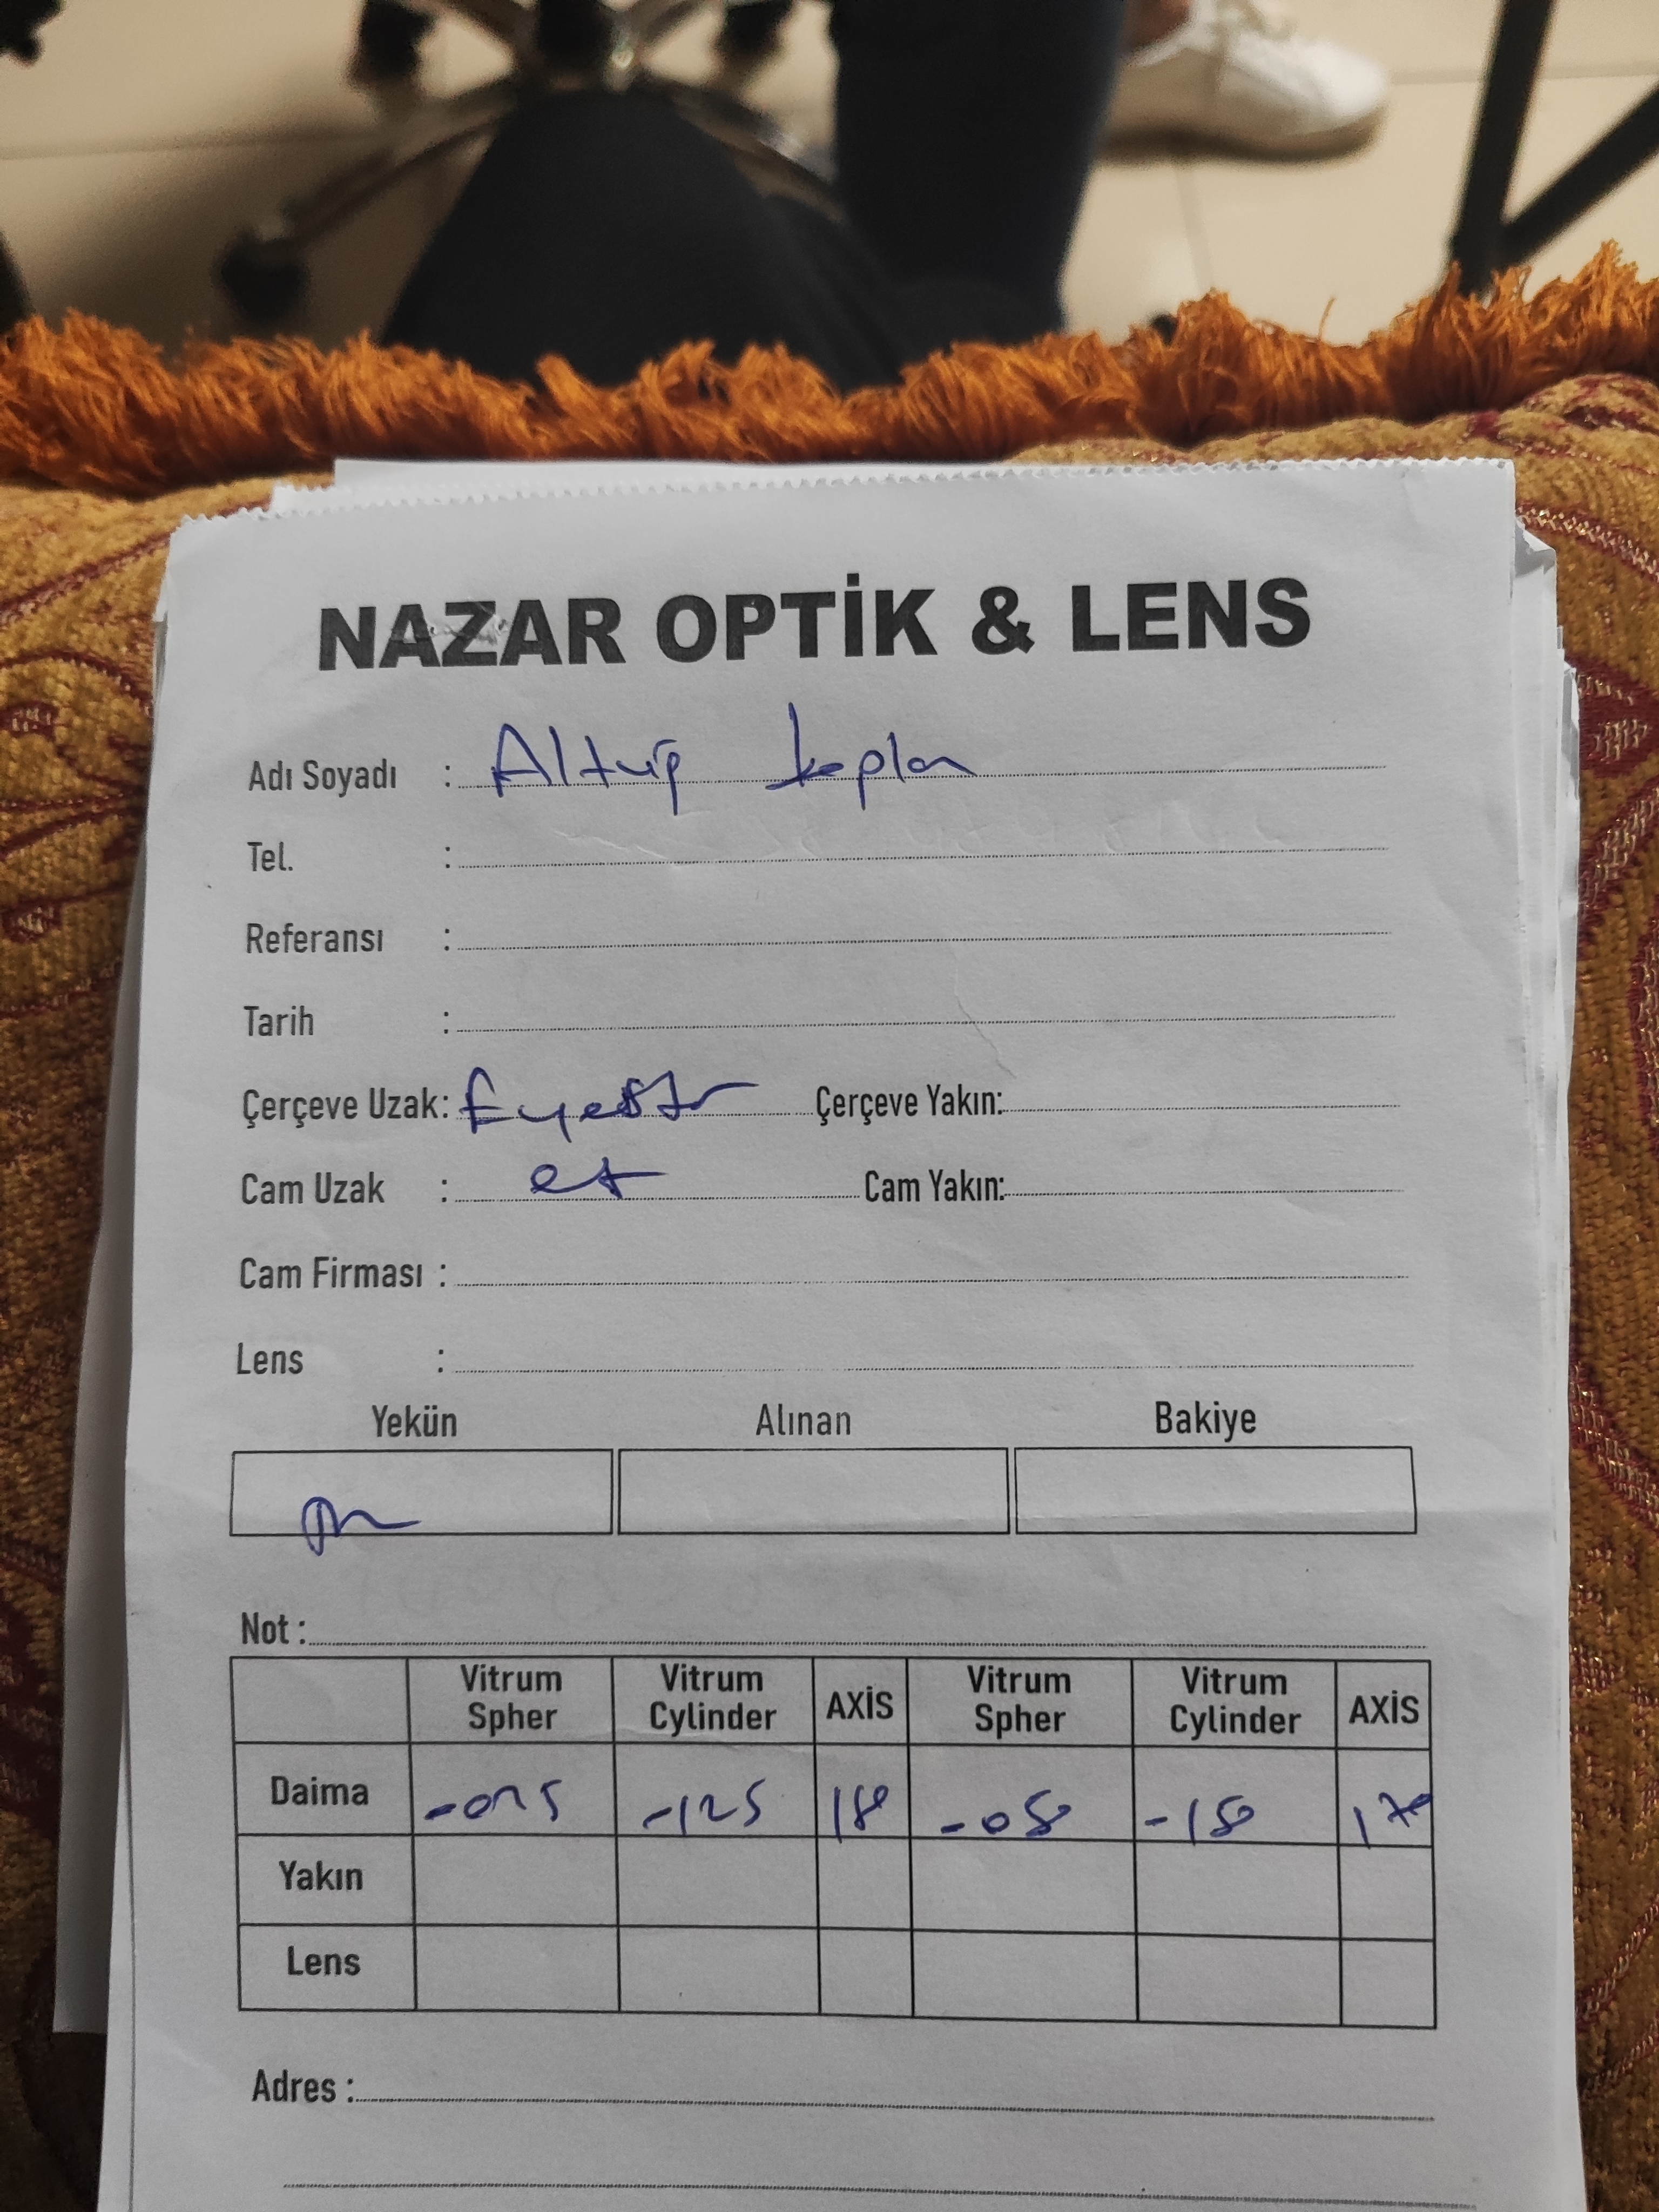 NAZAR OPTİK & LENS
Adı Soyadı : Altuğ kaplan
Tel. :
Referansı :
Tarih :
Çerçeve Uzak: Çerçeve Yakın:
Cam Uzak : Cam Yakın:
Cam Firması :
Lens :
Yekün Alınan Bakiye
Not :
Vitrum Spher Vitrum Cylinder AXİS Vitrum Spher Vitrum Cylinder AXİS
Daima -075 -125 -050 -150
Yakın
Lens
Adres :